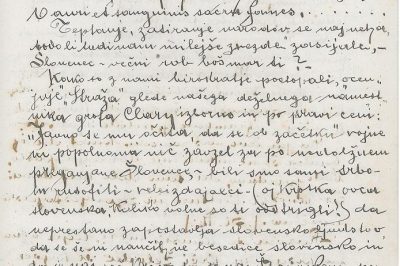 V auri et sanguinis sacra fames.
Teptanje, zatiranje narodov se naj neha,
bodo li tudi nam milejše zvezde zasijale, –
Slovenec – večni rob boš mar ti?
Kako so z nami birokratje postopali, ocen-
juje „Straža“ glede našega deželnega namest-
nika grofa Clary izborno in po pravici ceni:
„Javno se mu očita, da se ob začetku vojne
ni popolnoma nič zavzel za po nedolžnem
preganjane Slovence – bili smo sami srbo-
in rusofili – veleizdajalci – (oj krotka ovca
slovenska, koliko volne so ti odstrigli!) da
neprestano zapostavlja slovensko ljudstvo,
da se še ni naučil ne besedice slovensko in